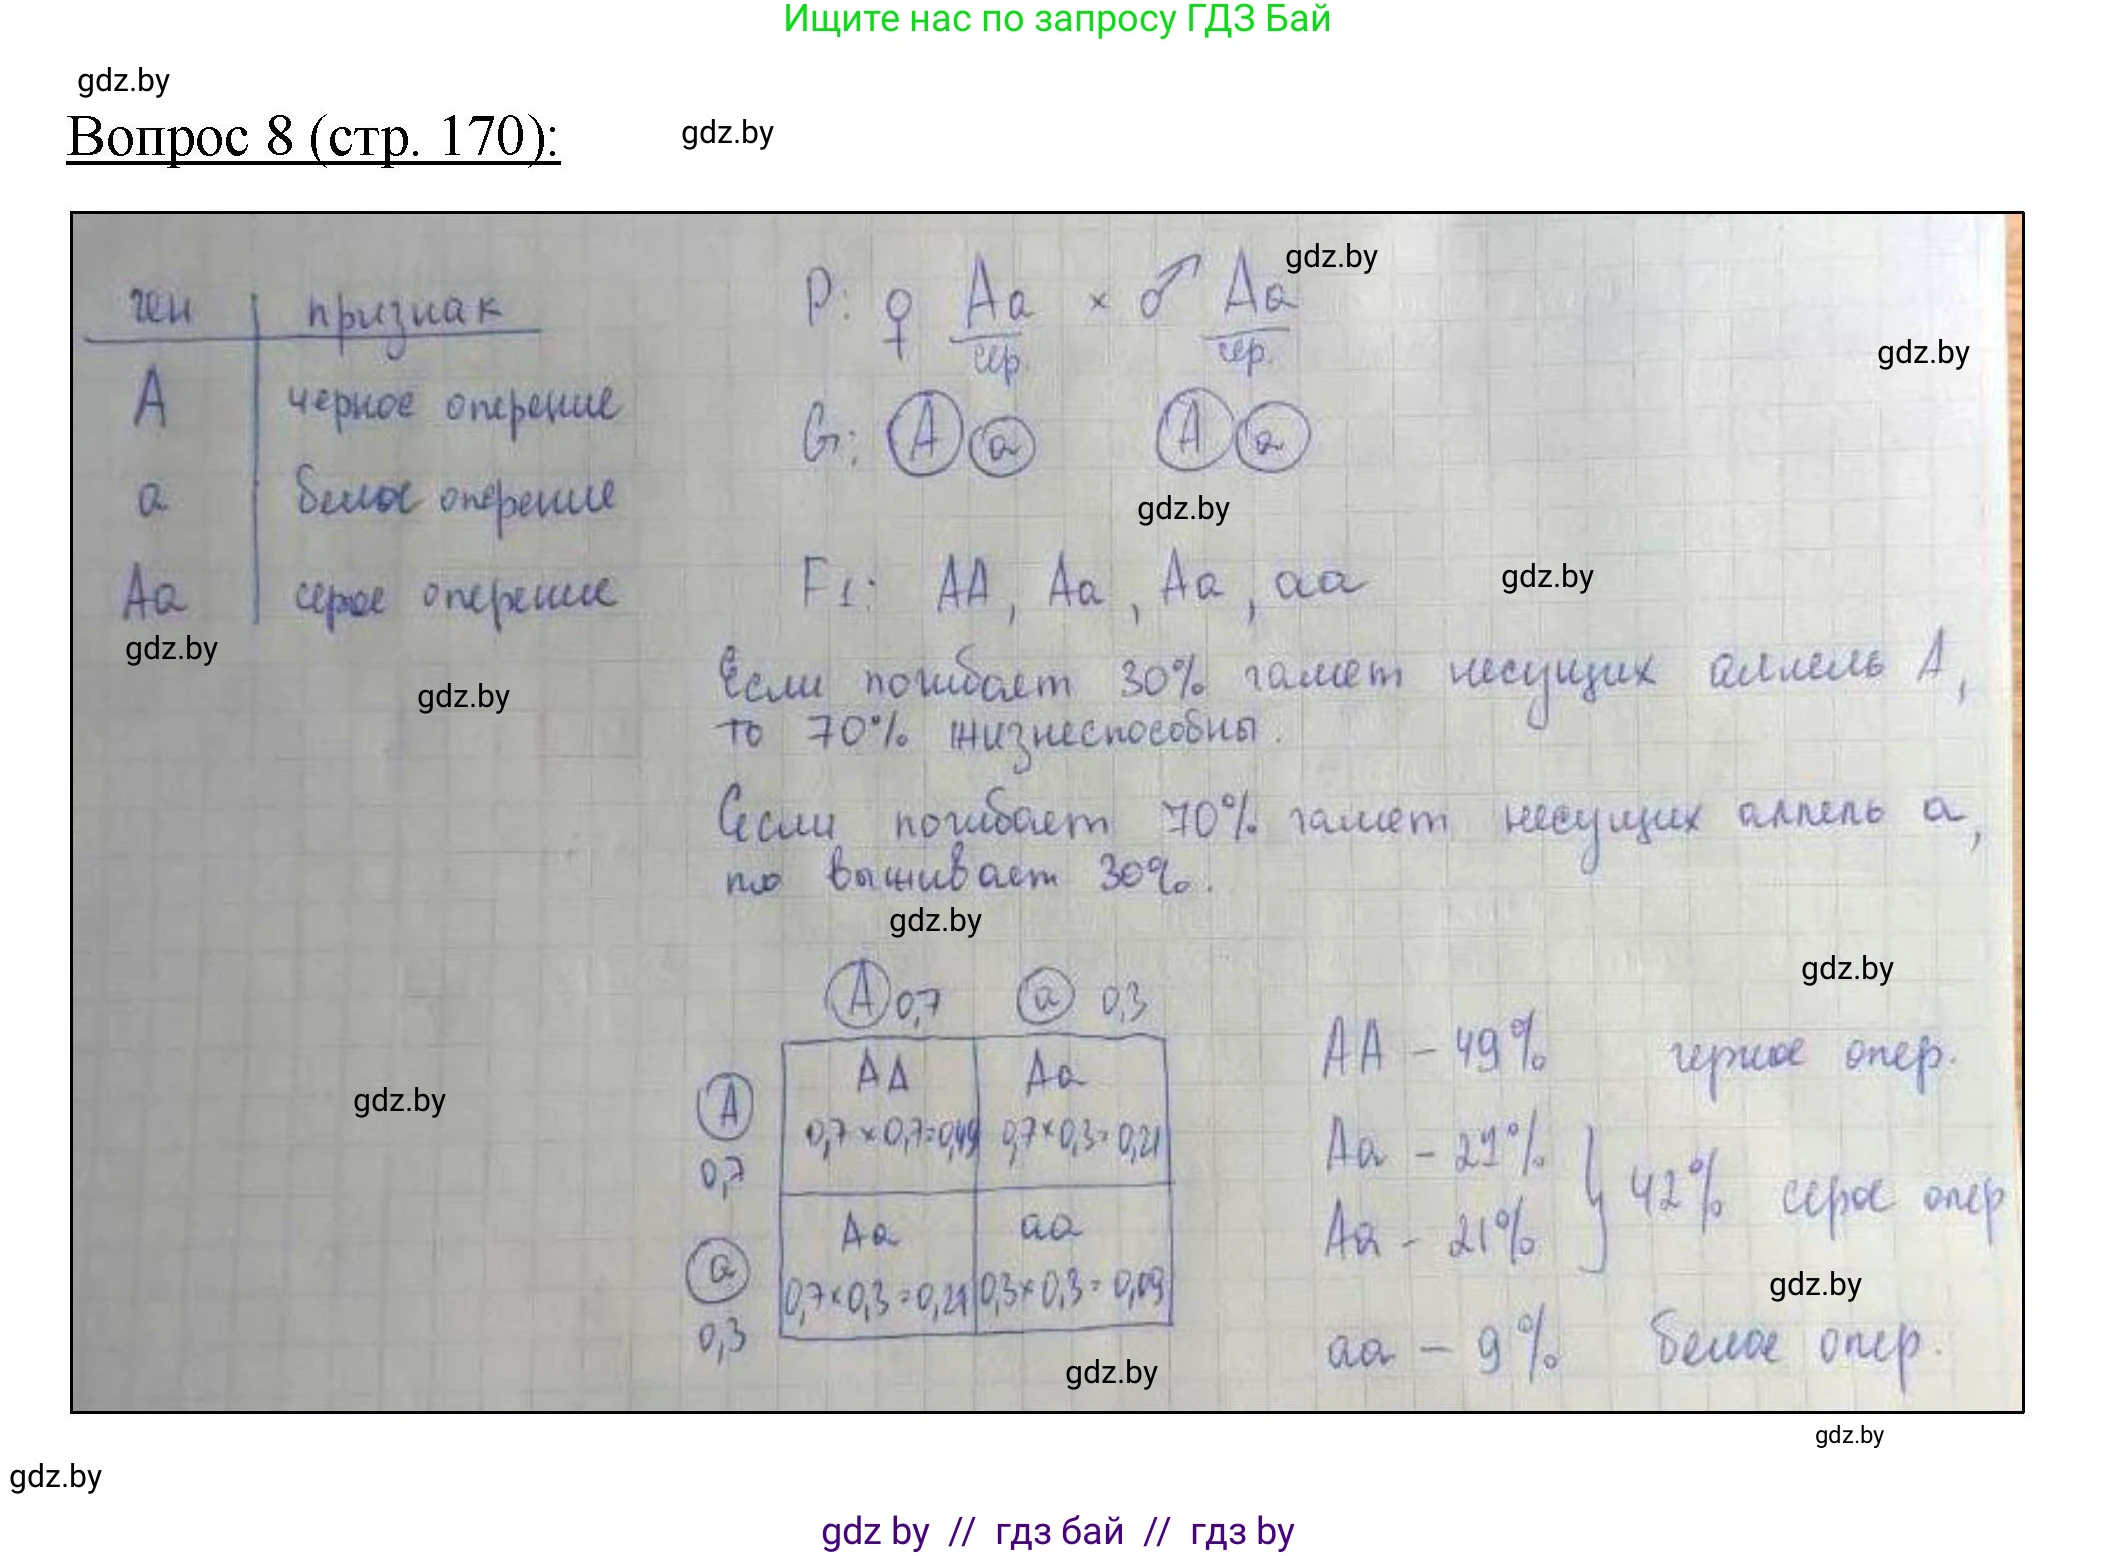 Ищите нас по запросу ГДЗ Бай
gdz.by
Вопрос 8 (стр. 170):
gdz.by
ген признак
А черное оперение
а белое оперение
Аа серое оперение
gdz.by
gdz.by
gdz.by
P: ♀ Аа × ♂ Аа
сер. сер.
gdz.by
gdz.by
G: А а А а
gdz.by
F1: АА, Аа, Аа, аа
gdz.by
Если погибает 30% гамет несущих аллель А,
то 70% жизнеспособны.
Если погибает 70% гамет несущих аллель а,
то выживает 30%.
gdz.by
А 0,7 а 0,3
А АА Аа
0,7 0,7×0,7=0,49 0,7×0,3=0,21
а Аа аа
0,3 0,7×0,3=0,21 0,3×0,3=0,09
gdz.by
gdz.by
АА – 49% черное опер.
Аа – 21%
Аа – 21% } 42% серое опер
gdz.by
аа – 9% белое опер.
gdz.by
gdz.by
gdz by // гдз бай // гдз by